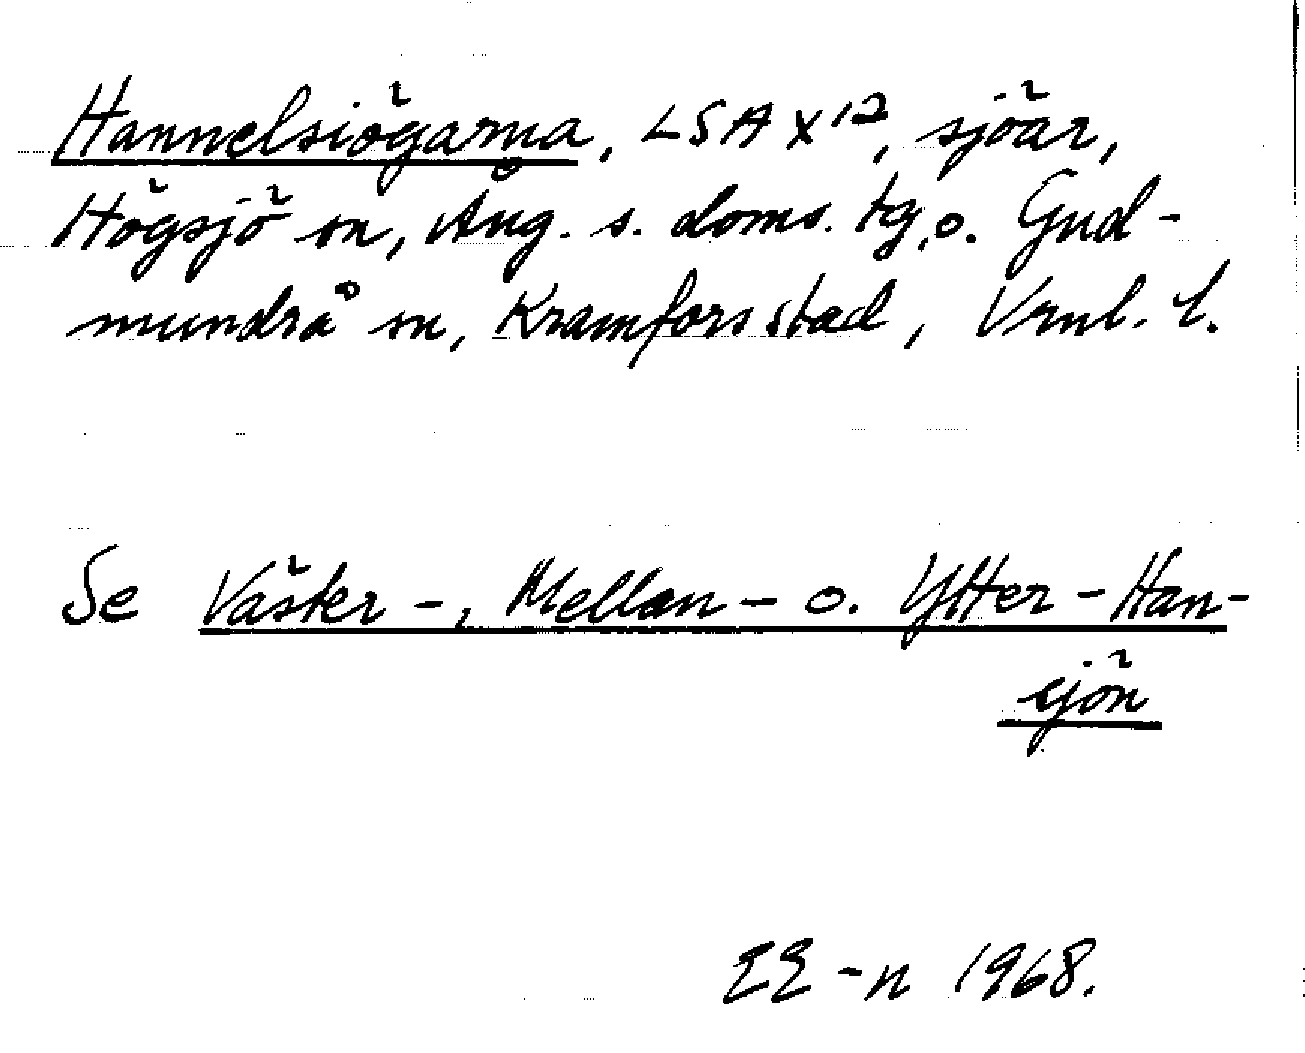 Hannelsiögarna, LSA X¹², sjöar,
Högsjö sn, Ång. s. doms. tg, o. Gud-
mundrå sn, Kramfors stad, Vrnl. l.
Se Väster-, Mellan- o. Ytter-Han-
sjön
EE-n 1968.